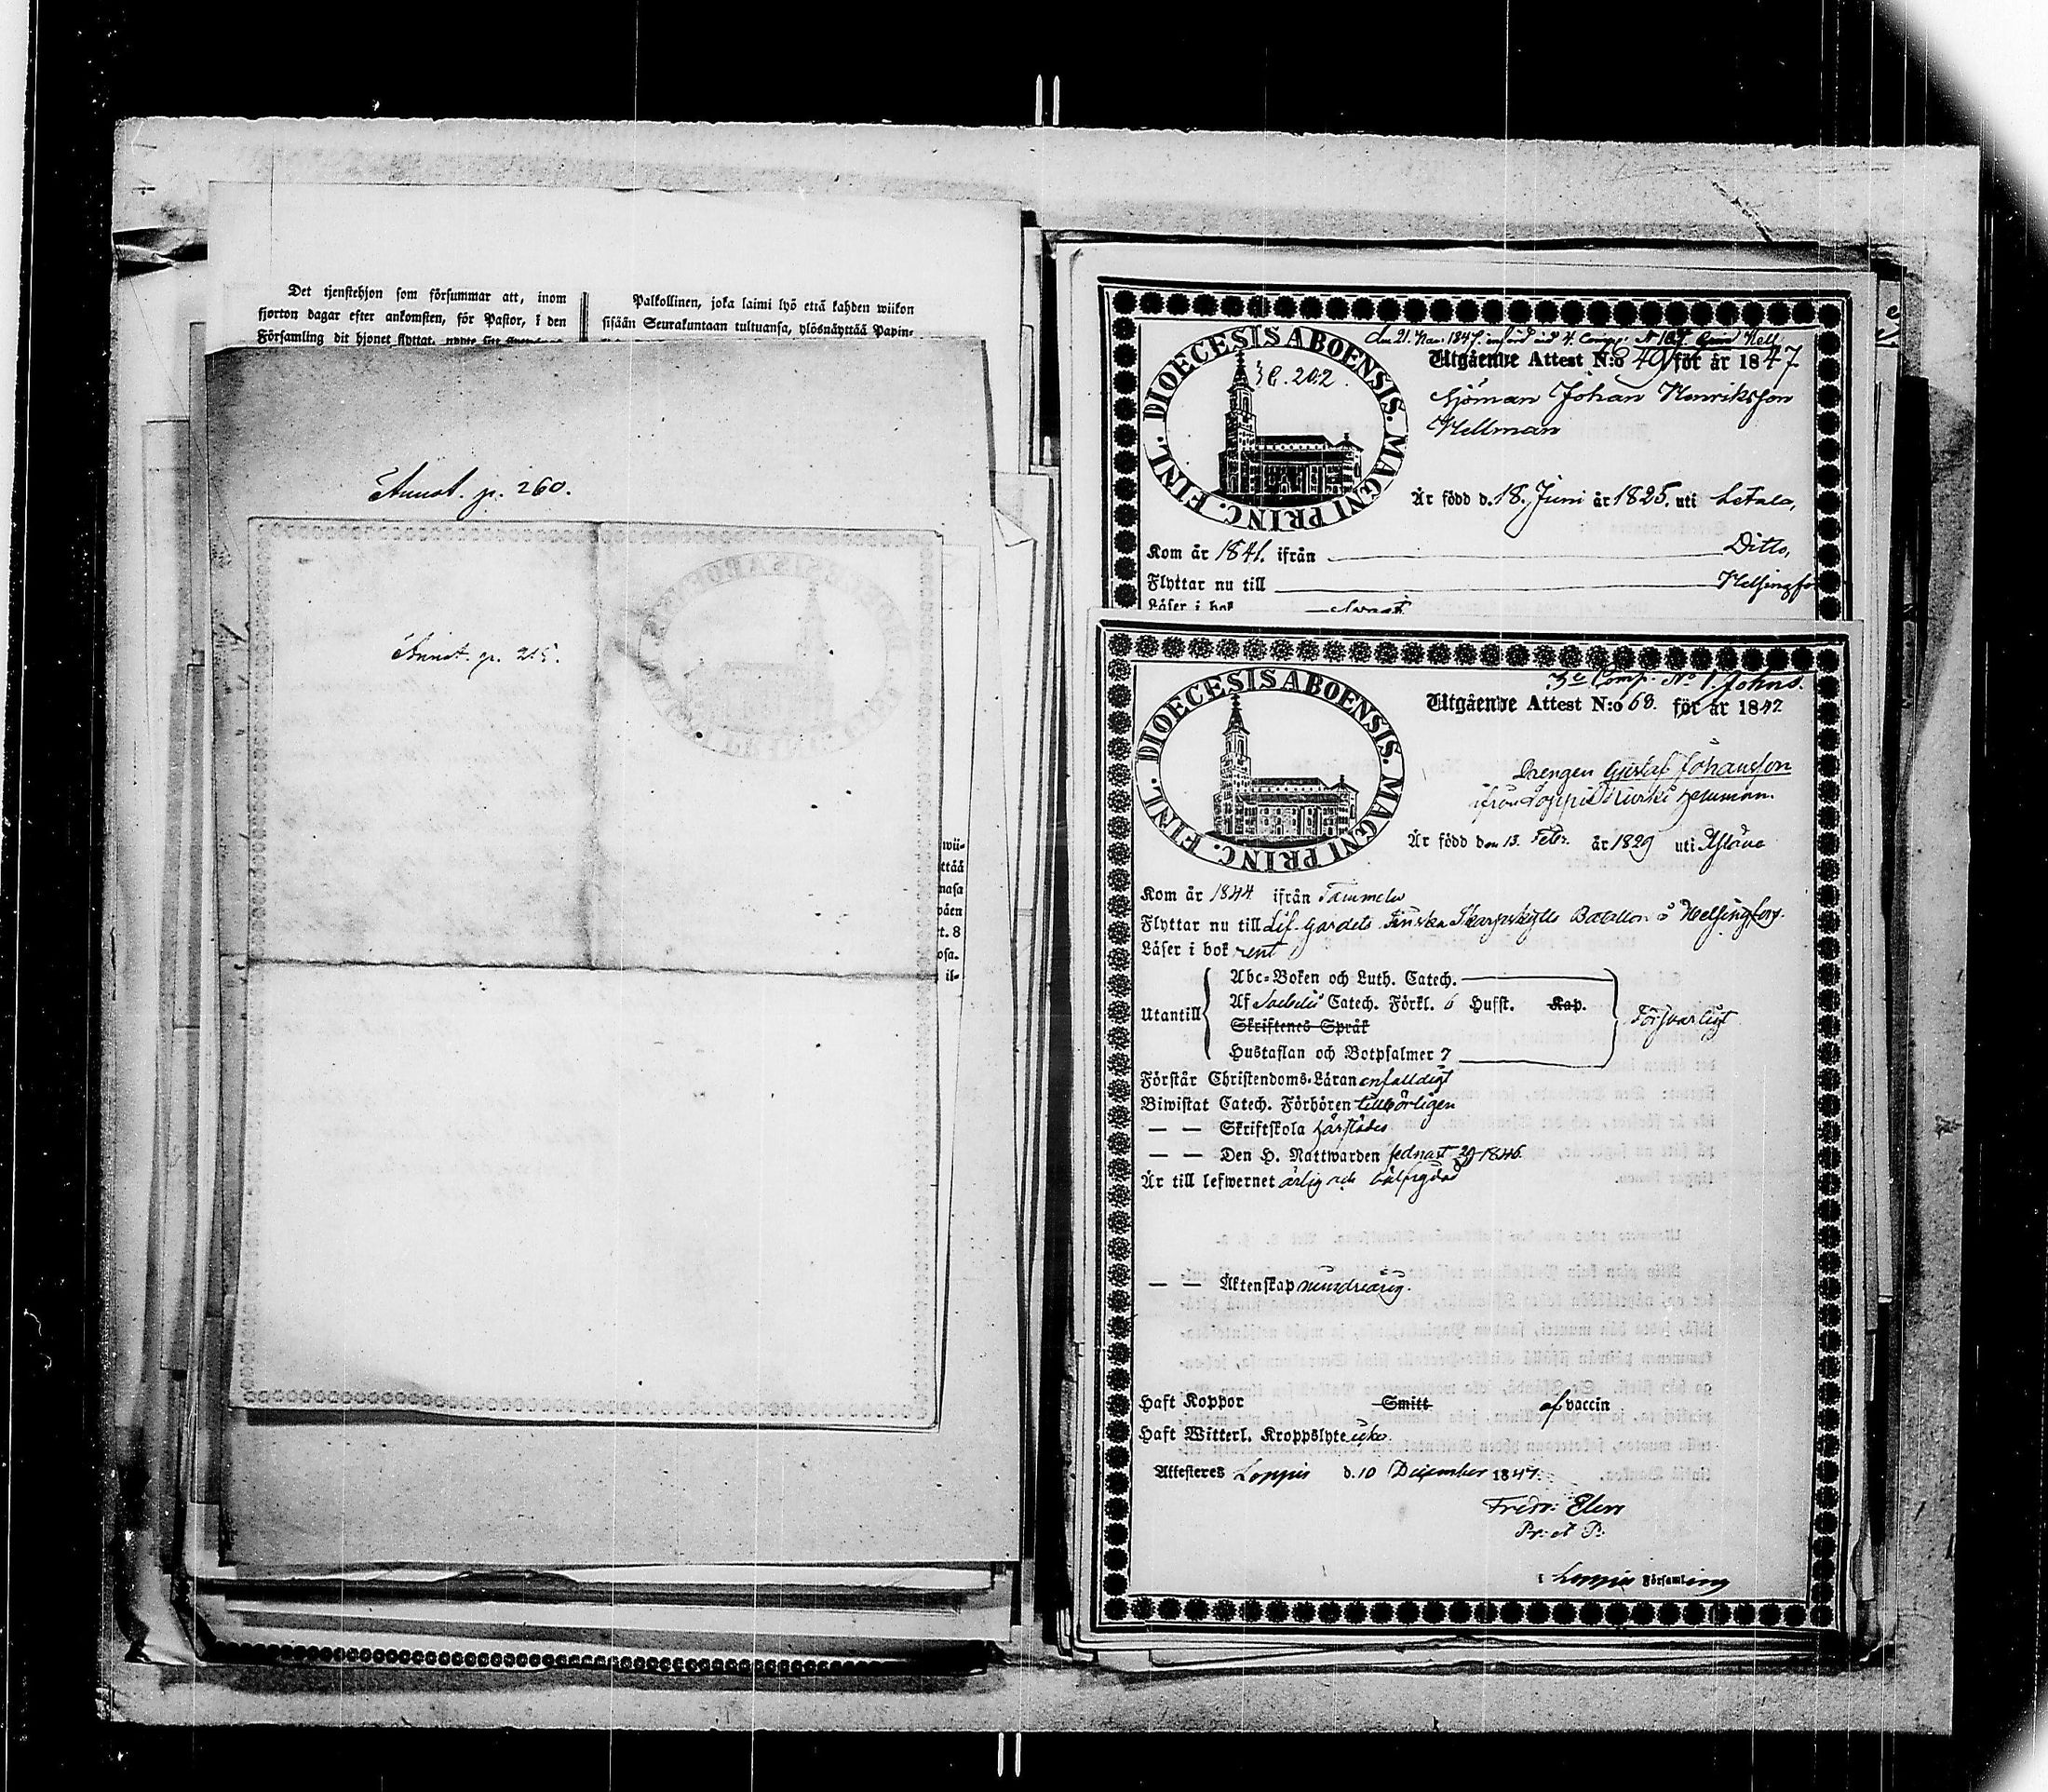 Det tjenstehjon som försummar att, inom
fjorton dagar efter ankomsten, för Pastor, i den
Församling dit hjonet flyttat,
Palkollinen, joka laimi lyö että kahden wiikon
sisään Seurakuntaan tultuansa, ylösnäyttää Papin-
Annot. p. 260.
Annot. p. 215.
wii-
ttää
nasa
päen
t. 8
osa.
il-
den 21. Nov. 1847 införd vid 4. Comp.
Utgående Attest N:o 49 för år 1847
DIOECESIS ABOENSIS. MAGNI PRINC. FINL.
202.
Sjöman Johan Henriksson
Hellman
Är född d. 18. Juni år 1825. uti Letala,
Kom år 1841. ifrån Ditto,
Flyttar nu till Helsingfo
Läser i bok
3e Comp. No 1. Johns.
Utgående Attest N:o 68. för år 1847
DIOECESIS ABOENSIS. MAGNI PRINC. FINL.
Drengen Gustaf Johansson
ifrån Loppis Hemman.
Är född den 13. Febr. år 1829 uti
Kom år 1844 ifrån Tammela
Flyttar nu till Lif-Gardets Finska Skarpskytte Bataillon i Helsingfors.
Läser i bok rent
Utantill
Abc-Boken och Luth. Catech.
Af Catech. Förkl. 6 Hufst. Kap.
Skriftenes Språk
Hustaflan och Botpsalmer 7
Försvarligt
Förstår Christendoms-Läran enfaldigt
Biwistat Catech. Förhören tillbörligen
— — Skriftskola härstädes
— — Den H. Nattwarden sednast 1846.
Är till lefwernet ärlig och välfrejdad
— — Äktenskap mindreårig.
Haft Koppor Smitt af vaccin
Haft Witterl. Kroppslyte icke.
Attesteres Loppis d. 10 December 1847.
Fredr: Elen
Pr: et P:
i Loppis Församling